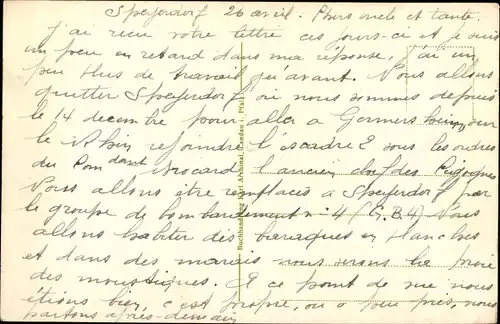 Speyerdorf 26 avril. Chers oncle et tante.
J'ai reçu votre lettre ces jours-ci et je suis
un peu en retard dans ma réponse, j'ai un
peu plus de travail qu'avant. Nous allons
quitter Speyerdorf où nous sommes depuis
le 14 décembre pour aller à Germersheim, sur
le Rhin rejoindre l'escadre 2 sous les ordres
du Commandant Brocard l'ancien chef des Cigognes
Nous allons être remplacés à Speyerdorf par
le groupe de bombardement n° 4 (G.B.4) Nous
allons habiter des baraques en planches
et dans des marais nous serons la proie
des moustiques. A ce point de vue nous
étions bien, c'est propre, ou à peu près, nous
partons après-demain
Buchhandlung Karl Archinal, Landau i. Pfalz